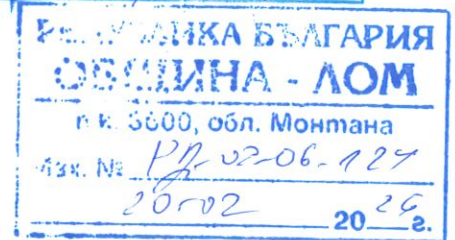 РЕПУБЛИКА БЪЛГАРИЯ
ОБЩИНА - ЛОМ
п.к. 3600, обл. Монтана
Изх. № РД-02-06-124
20-02 2026 г.